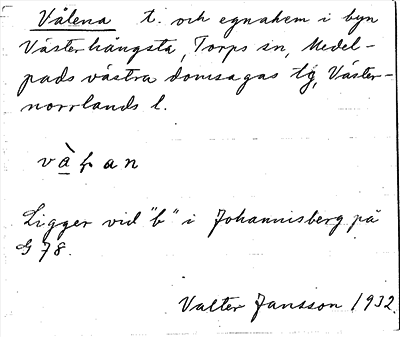 Vålena t. och egnahem i byn
Västerhångsta, Torps sn, Medel-
pads västra domsagas tg, Väster-
norrlands l.
Ligger vid "b" i Johannisberg på
G 78.
Valter Jansson 1932.